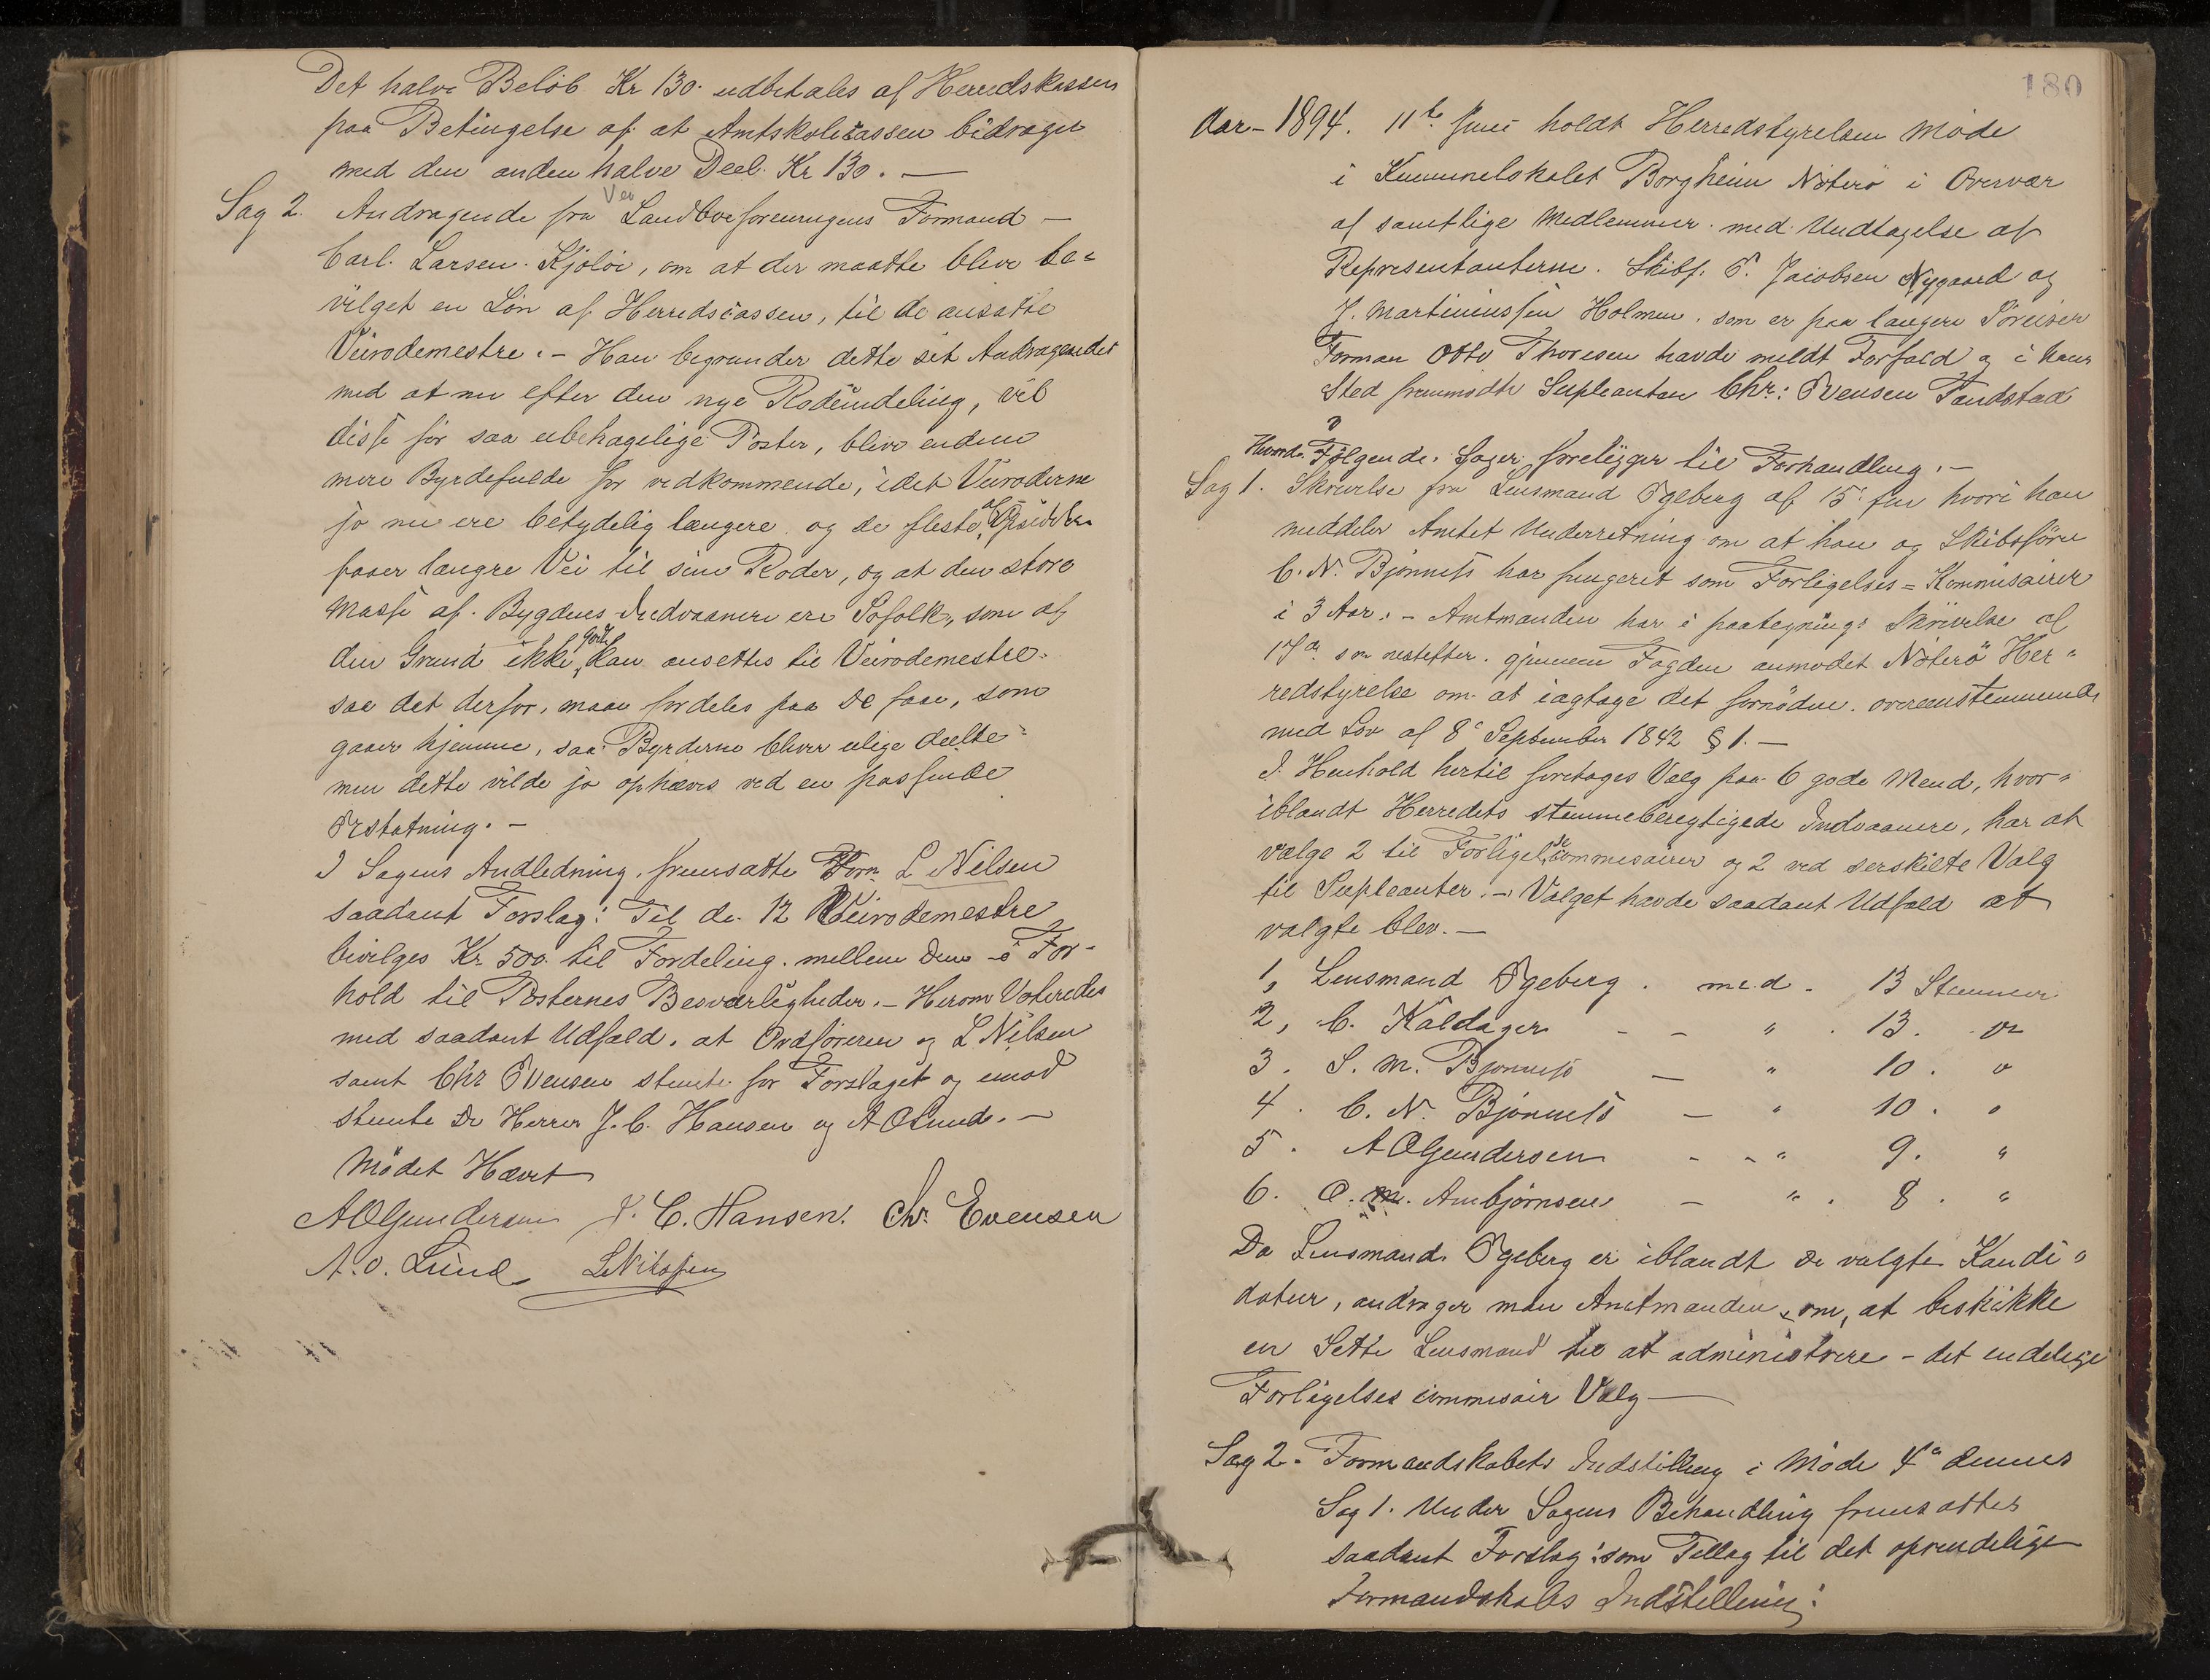 Det halve Beløb Kr 130. udbetales af Herredskassen
paa Betingelse af at Amtskolecassen bidrager
med den anden halve Deel. Kr 130. —
Sag 2. Andragende fra Landboeforeningens Formand —
Vei
Carl. Larsen. Kjøløe, om at der maatte blive be=
vilget en Løn af Herredscassen, til de ansatte
Veirodemestre. – Han begrunder dette sit Andragende
med at nu efter den nye Rodeindeling, vil
disse før saa ubehagelige Poster, blive endnu
mere Byrdefulde for vedkommende, idet Veiroderne
jo nu ere betydelig længere og de fleste af
faaer længre Vei til sine Roder, og at den store
Masse af. Bygdens Indvaanere ere Søfolk, som af
den Grund ikke godt kan ansettes til Veirodemestre.
saa det derfor, maa fordeles paa De faa, som
gaaer hjemme, saa Byrderne bliver ulige deelte
men dette vilde jo ophæves ved en passende
Erstatning. –
I Sagens Andledning. fremsatte Form L Nilsen
saadant Forslag: Til de 12 Veirodemestre
bevilges Kr 500 til Fordeling. mellem dem i For-
hold til Posternes Besværligheder. – Herom Voteredes
med saadant Udfald. at Ordføreren og L Nilsen
samt Chr Evensen stemte for Forslaget og imod
stemte De Herrer J. C. Hansen og A O Lund. –
Mödet Hævet
AOGundersen J. C. Hansen. Chr. Evensen
A. O. Lund LNilssen
180
Aar – 1894. 11te Juni holdt Herredstyrelsen Møde
i Kummunelokalet Borgheim Nøterö i Overvær
af samtlige Medlemmer. med Undtagelse af
Representanterne. Skibsf. P. Jacobsen Nygaard og
J. Martiniussen Holmen. som er paa længere Søreiser
Forman Otto Thoresen havde meldt Forfald og i hans
Sted fremmødte Supleanten Chr: Evensen Tandstad
Hvorda Følgende. Sager foreligger til Forhandling. –
Sag 1. Skrivelse fra Lensmand Ygeberg af 15 hvori han
meddeler Amtet Underretning om at han og Skibsfører
C. N. Bjønness har fungeret som Forligelses=Kommisairer
i 3 Aar. – Amtmanden har i paategnings Skrivelse af
17de s m nestefter. gjennem Fogden anmodet Nøterö Her=
redstyrelse om at iagtage det fornödne. overeenstemmende
med Lov af 8de September 1842 § 1. —
I Henhold hertil foretages Valg paa 6 gode Mænd, hvor=
iblandt Herredets stemmeberegtigede Indvaanere, har at
vælge 2 til Forligelsecommisairer og 2 ved serskilte Valg
til Supleanter. – Valget havde saadant Udfald at
valgte blev. —
1, Lensmand Ygeberg. med. 13 Stemmer
2, C. Kaldager – – " . 13. "
3. S. M. Bjønness — " 10. "
4. C. N. Bjønness — " 10. "
5. A O Gundersen - - " 9. "
6. O. M. Ambjørnsen — " . 8. "
Da Lensmand Ygeberg er iblandt de valgte Kandi=
dater, andrager man Amtmanden om, at beskikke
en Sette Lensmand til at administrere – det endelige
Forligelses commisair Valg —
Sag 2. Formandskabets Indstilling i Møde 4de dennes
Sag 1. Under Sagens Behandling fremsattes
saadant Forslag: som Tillæg til det oprindelige
Formandskabs Indstilling: